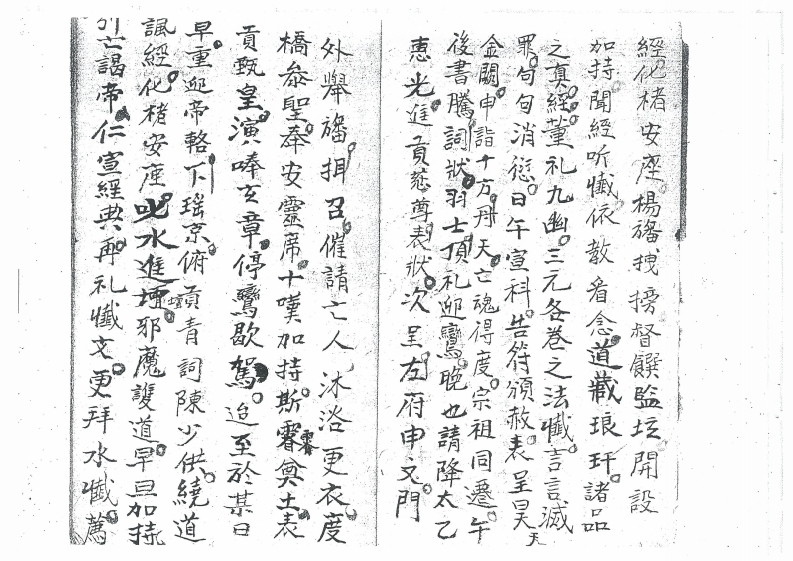 經化楮安座。楊旛拽搒督饌監坛開設
加持。聞經听懺依教看念。道藏琅玕諸品
之真經。董礼九幽。三元各卷之法懺。言言滅
罪。句句消愆。日午宣科。告符頒赦。表呈昊天
金闕。申詣十方。丹天。亡魂得度。宗祖同遷。午
後書騰詞狀。羽士頂礼迎鸞。晚也請降太乙
惠光。進貢慈尊表狀。次呈左府申文。門
外舉旛。挕召催請亡人沐浴更衣度
橋叅聖。奉安靈席。十嘆加持。斯霽奠土。表
貢甄皇。演唪玄章。停鸞歇駕。迨至於某日
早重迎帝輅。下瑤京俯貢青詞陳少供。繞道
諷經。化楮安座。叱水進壇。邪魔護道。早旦加持
引亡謁帝。仁宣經典。再礼懺文。更拜水懺。薦